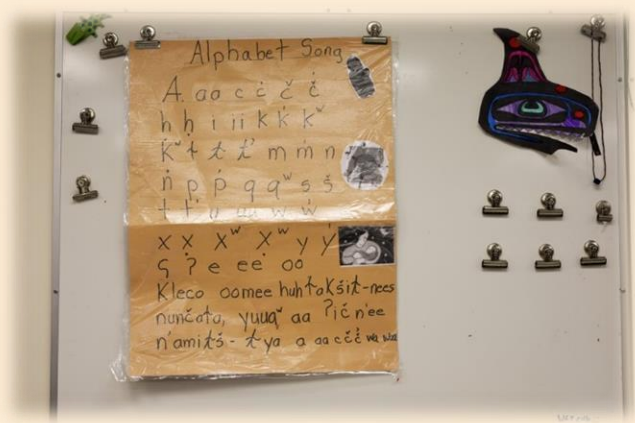 Alphabet Song
A aa c c̓ č č̓
h ḥ i ii k k̓ kʷ
k̓ʷ ł ƛ ƛ̓ m m̓ n
n̓ p p̓ q qʷ s š
t t̓ u uu w w̓
x x̣ xʷ x̣ʷ y y̓
ʕ ʔ e ee oo
Kleco oomee huhtakšiƛ-nees
nunčata, yuuqʷ aa ʔičn'ee
ƛ ya a aa c č č̓